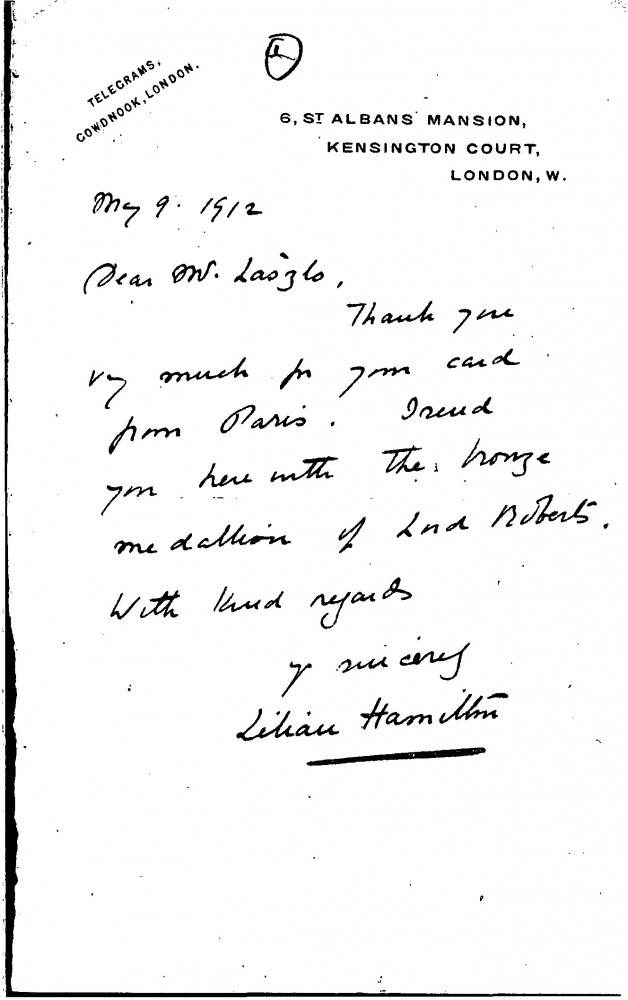 TELEGRAMS,
COWDNOOK, LONDON.
6, ST ALBANS MANSION,
KENSINGTON COURT,
LONDON, W.
May 9. 1912
Dear Mr. László,
Thank you
very much for your card
from Paris. I send
you herewith the bronze
medallion of Lord Roberts.
With kind regards
yr sincerely
Lilian Hamilton